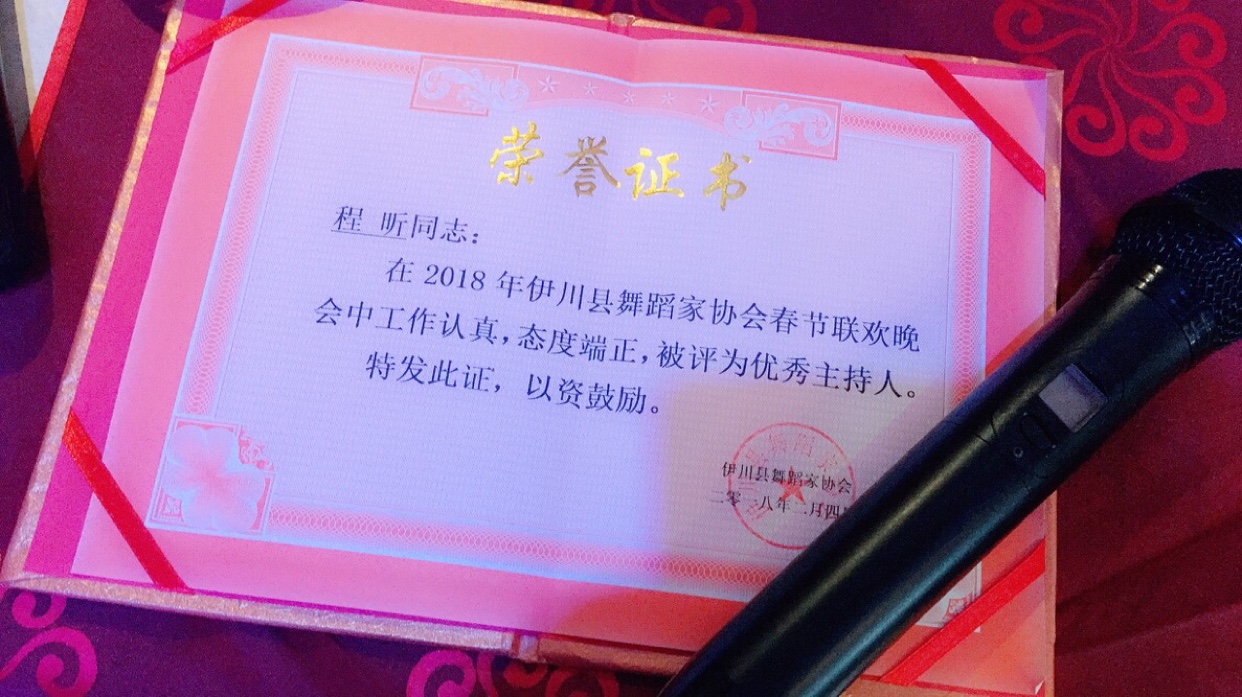 荣誉证书
程 昕同志：
在 2018 年伊川县舞蹈家协会春节联欢晚
会中工作认真，态度端正，被评为优秀主持人。
特发此证，以资鼓励。
伊川县舞蹈家协会
二零一八年二月四